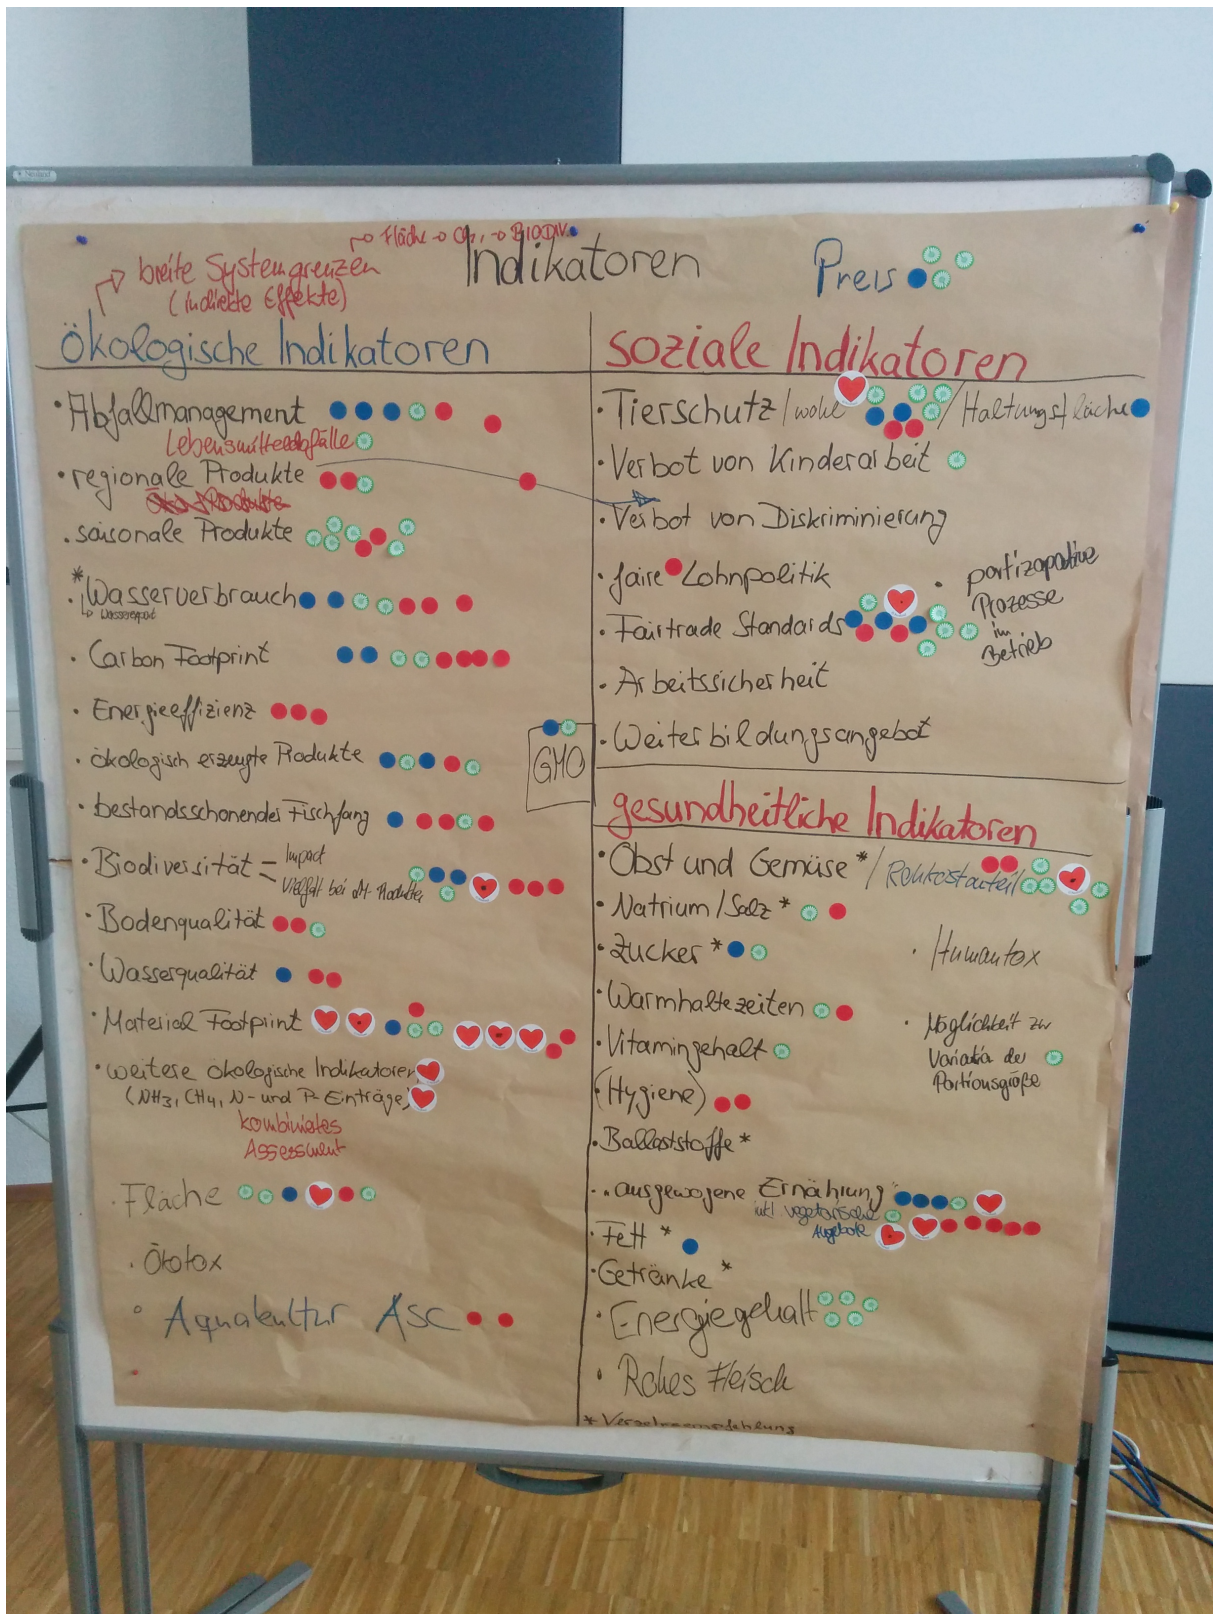 Neuland
→ Fläche → CO₂, → BIODIV.
Indikatoren
Preis
→ breite Systemgrenzen
(indirekte Effekte)
ökologische Indikatoren
• Abfallmanagement
Lebensmittelabfälle
• regionale Produkte
Öko-Produkte
• saisonale Produkte
* • Wasserverbrauch
• Carbon Footprint
• Energieeffizienz
• ökologisch erzeugte Produkte
• bestandsschonender Fischfang
• Biodiversität – Impact
– Vielfalt bei Produkte
• Bodenqualität
• Wasserqualität
• Material Footprint
• weitere ökologische Indikatoren
(NH3, CH4, N- und P-Einträge)
kombiniertes
Assessment
• Fläche
• Ökotox
• Aquakultur ASC
GMO
soziale Indikatoren
• Tierschutz/wohl /Haltungsfläche
• Verbot von Kinderarbeit
• Verbot von Diskriminierung
• faire Lohnpolitik
• Fairtrade Standards
• Arbeitssicherheit
• Weiterbildungsangebot
• partizapative
Prozesse
im
Betrieb
gesundheitliche Indikatoren
• Obst und Gemüse * / Rohkostanteil
• Natrium/Salz *
• Zucker *
• Warmhaltezeiten
• Vitamingehalt
(Hygiene)
• Ballaststoffe *
• "ausgewogene Ernährung"
inkl vegetarische
Angebote
• Fett *
• Getränke *
• Energiegehalt
• Rohes Fleisch
• Humantox
• Möglichkeit zur
Variation der
Portionsgröße